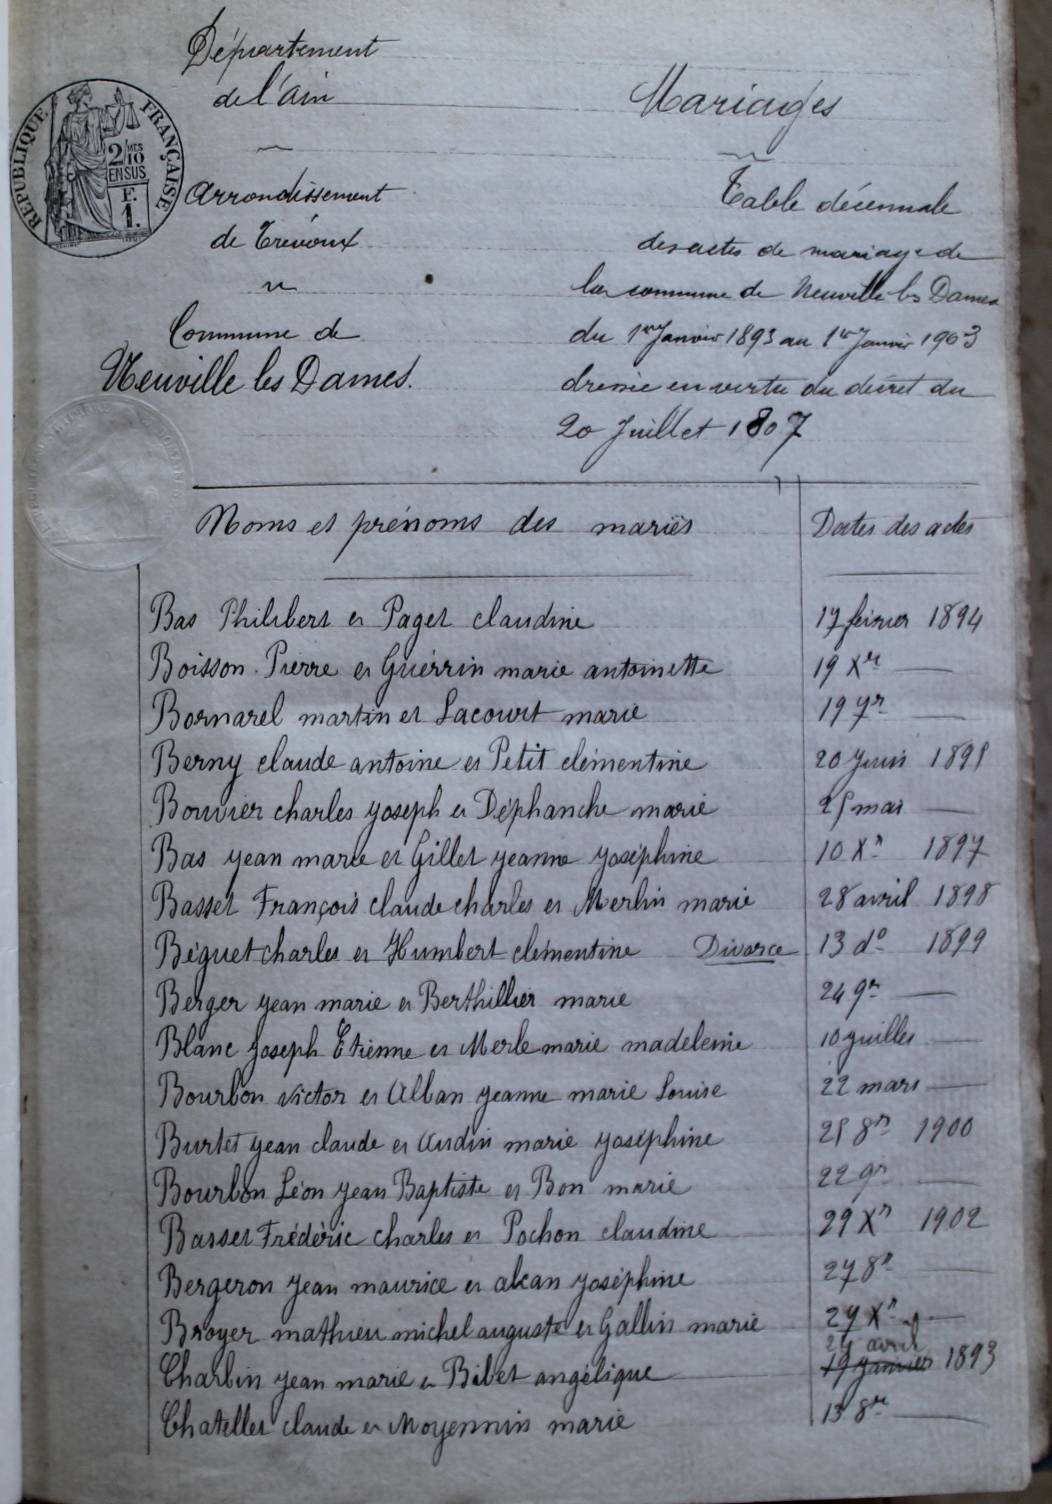 Département
de l'Ain
RÉPUBLIQUE FRANÇAISE
2/10 MES
EN SUS
F.
1.
Arrondissement
de Trévoux
Commune de
Neuville les Dames.
Mariages
Table décennale
des actes de mariage de
la commune de Neuville les Dames
du 1er Janvier 1893 au 1er Janvier 1903
dressée en vertu du décret du
20 Juillet 1807
Noms et prénoms des mariés Dates des actes
Bas Philibert et Paget claudine 17 février 1894
Boisson Pierre et Guérrin marie antoinette 19 Xre —
Bornarel martin et Lacourt marie 19 7re —
Berny claude antoine et Petit clémentine 20 Juin 1895
Bouvier charles joseph et Déphanche marie 25 mai —
Bas jean marie et Gillet jeanne joséphine 10 Xre 1897
Basset François claude charles et Merlin marie 28 avril 1898
Béguet charles et Humbert clémentine Divorce 13 do 1899
Berger jean marie et Berthillier marie 24 9re —
Blanc joseph Etienne et Merle marie madeleine 10 juillet —
Bourbon victor et Alban jeanne marie Louise 22 mars —
Burtet jean claude et Audin marie joséphine 25 8re 1900
Bourbon Léon jean Baptiste et Bon marie 22 9re —
Basset Frédéric charles et Pochon claudine 29 Xre 1902
Bergeron jean maurice et alcan joséphine 27 8re —
Broyer mathieu michel auguste et Gallin marie 27 Xre —
24 avril
Charbin jean marie et Bibet angélique 19 janvier 1893
Chatellet claude et Moyennin marie 13 8re —